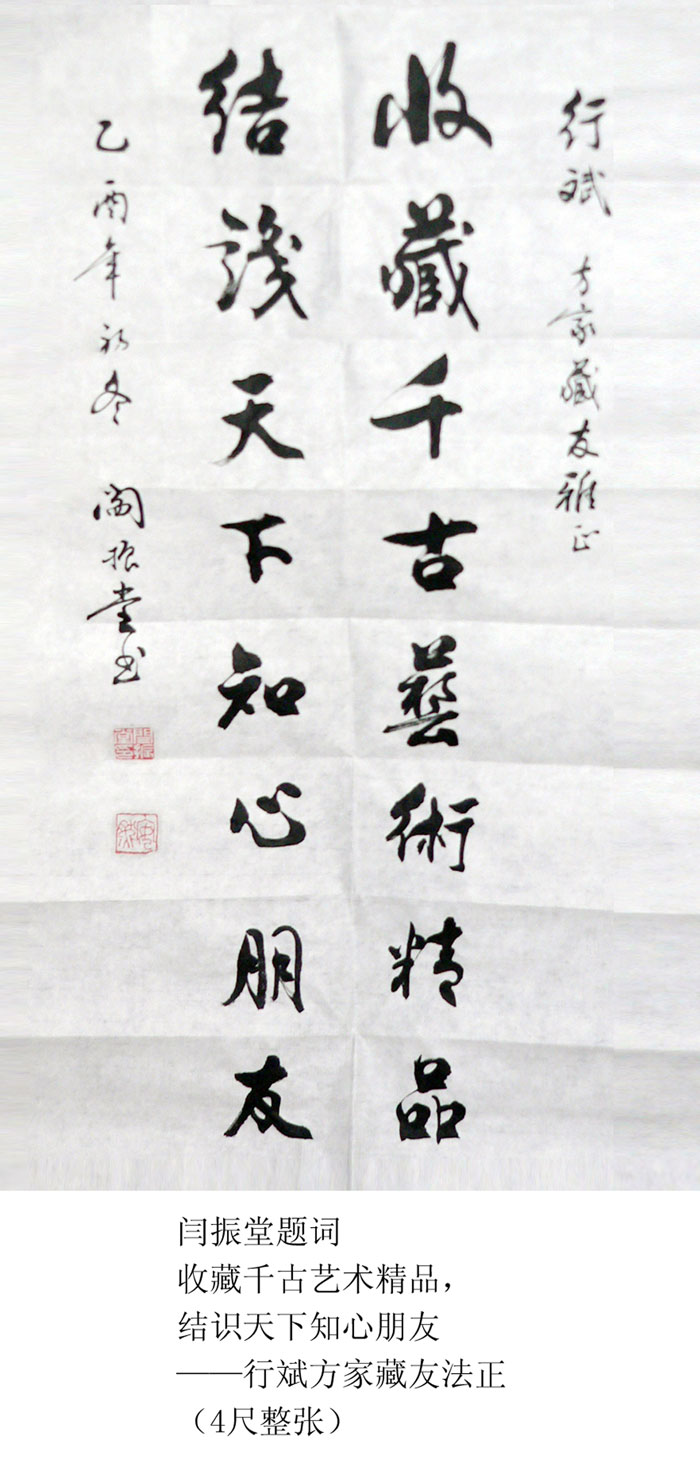 行斌 方家藏友雅正
收藏千古藝術精品
結識天下知心朋友
乙酉年初冬 閆振堂书
闫振堂题词
收藏千古艺术精品，
结识天下知心朋友
——行斌方家藏友法正
（4尺整张）